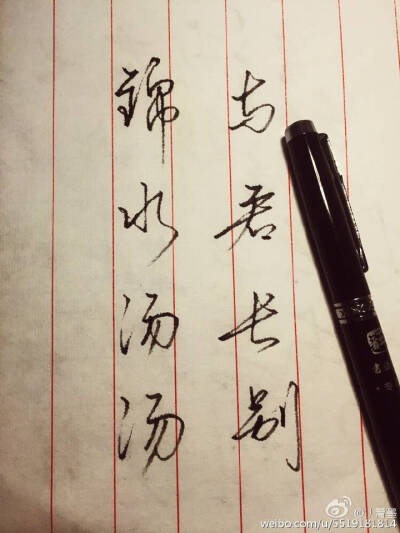 与君长别
锦水汤汤
weibo.com/u/5519181814